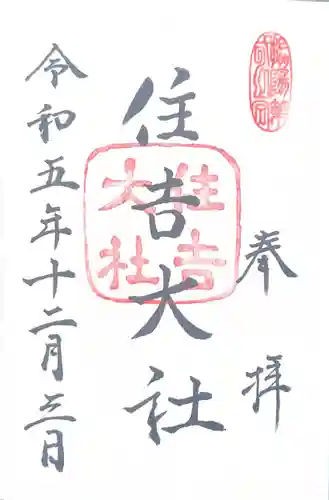 奉拝
住吉大社
住吉
大社
令和五年十二月三日